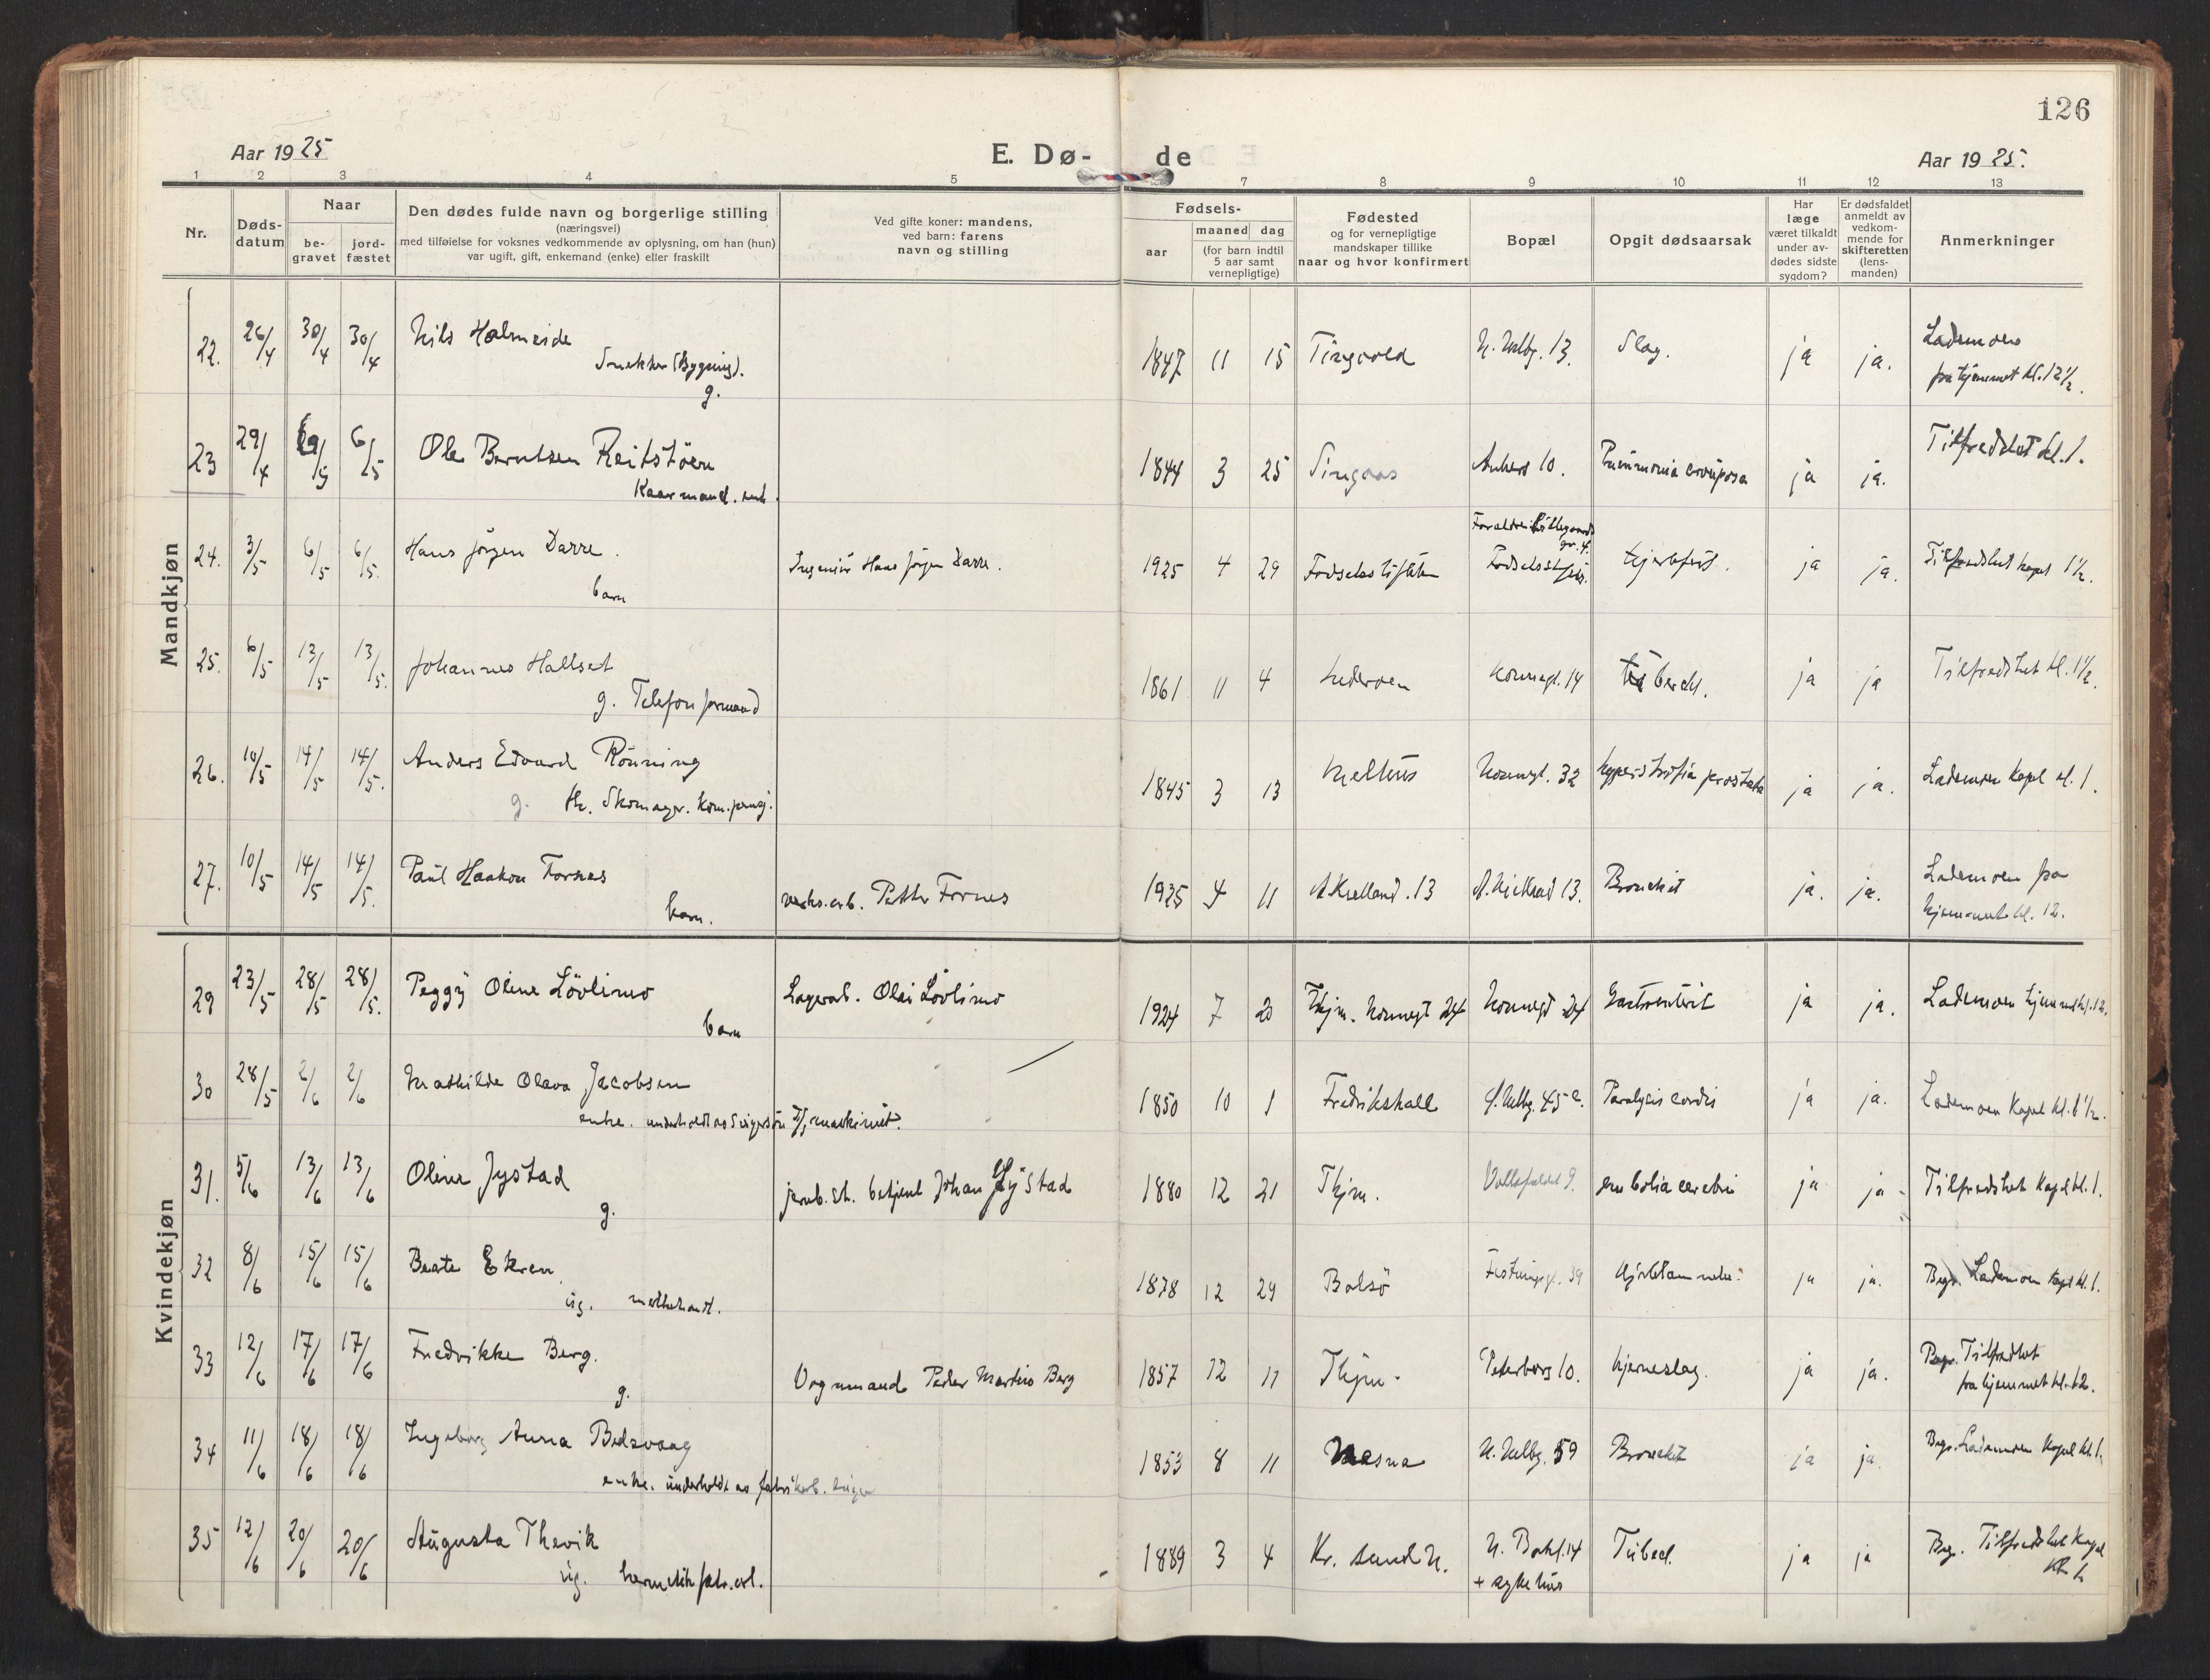 126
Aar 1925
E. Dø-
de
Aar 1925.
1 2 3 4 5 7 8 9 10 11 12 13
Nr.
Døds-
datum
Naar
be-
gravet
jord-
fæstet
Den dødes fulde navn og borgerlige stilling
(næringsvei)
med tilføielse for voksnes vedkommende av oplysning, om han (hun)
var ugift, gift, enkemand (enke) eller fraskilt
Ved gifte koner: mandens,
ved barn: farens
navn og stilling
Fødsels-
aar
maaned dag
(for barn indtil
5 aar samt
vernepligtige)
Fødested
og for vernepligtige
mandskaper tillike
naar og hvor konfirmert
Bopæl
Opgit dødsaarsak
Har
læge
været tilkaldt
under av-
dødes sidste
sygdom?
Er dødsfaldet
anmeldt av
vedkom-
mende for
skifteretten
(lens-
manden)
Anmerkninger
Mandkjøn
22. 26/4 30/4 30/4 Nils Halmeide 1847 11 15 Tingvold 13. Slag. ja ja. Lademoen
Snekker (Bygning).
g.
fra hjemmet kl. 12 1/2.
23 29/4 6/5 6/5 Ole Berntsen Reitstöen 1844 3 25 Singsas 10. Pneumonia crouposa ja ja. Tilfredshet kl. 1.
Kaarmand. enk.
24. 3/5 6/5 6/5. Hans Jörgen Darre. Ingeniör Hans Jörgen Darre. 1925 4 29 Födselsstiftelsen Hjertefeil. ja ja. Tilfredshet kapel 1 1/2.
barn
25. 6/5 13/5 13/5. Johannes Hallset 1861 11 4 Inderoen Nonnegt. 14 tubercul. ja ja Tilfredshet kl. 1 1/2.
g. Telefonformand
26. 10/5 14/5 14/5. Anders Edvard Rönning 1845 3 13 Melhus Nonnegt. 32 hyperstrofia prostata ja ja. Lademoen Kapel kl. 1.
g. fh. Skomager. kom. pensj.
27. 10/5 14/5 14/5. Paul Haakon Fornes verks.arb. Petter Fornes 1925 4 11 A Kielland. 13 A. Kielland 13. Bronchit ja. ja. Lademoen fra
barn.
hjemmet kl. 12.
Kvindekjøn
29 23/5 28/5 28/5. Peggy Oline Lövlimo Lagerarb. Olai Lövlimo 1924 7 20 Thjm. Nonnegt 24 Nonnegt 24 Gastroenterit ja ja. Lademoen hjemmet kl. 12.
barn
30 28/5 2/6 2/6 Mathilde Olava Jacobsen 1850 10 1 Fredrikshall 45 c. Paralysis cordis ja ja. Lademoen Kapel kl.
enke. underholdt av
31. 5/6 13/6 13/6 Oline Jystad jernb. st. betjent Johan Jystad 1880 12 21 Thjm. Vollafaldet 9. embolia cerebri ja ja Tilfredshet Kapel kl. 1.
g.
32 8/6 15/6 15/6 Beate Ekren 1878 12 29 Bolsö Festningsgt. 39 ja ja. Begr. Lademoen kapel kl. 1.
ug. melkehandl.
33 12/6 17/6 17/6 Fredrikke Berg. Vognmand Peder Martin Berg 1857 12 11 Thjm. Peterborg 10. hjerneslag. ja ja. Begr. Tilfredshet
g.
fra hjemmet kl. 12.
34 11/6 18/6 18/6 Ingeborg Anna Bedsvaag 1853 8 11 Nesna 59 Bronchit ja ja. Begr. Lademoen Kapel kl. 1.
enke. underholdt av fabrikarb.
35 12/6 20/6 20/6 Augusta Thevik 1889 3 4 Kr. sund N. 14 Tubercl. ja ja Begr. Tilfredshet Kapel
ug. hermetikfabr. arb.
+ sykehus
kl. 1